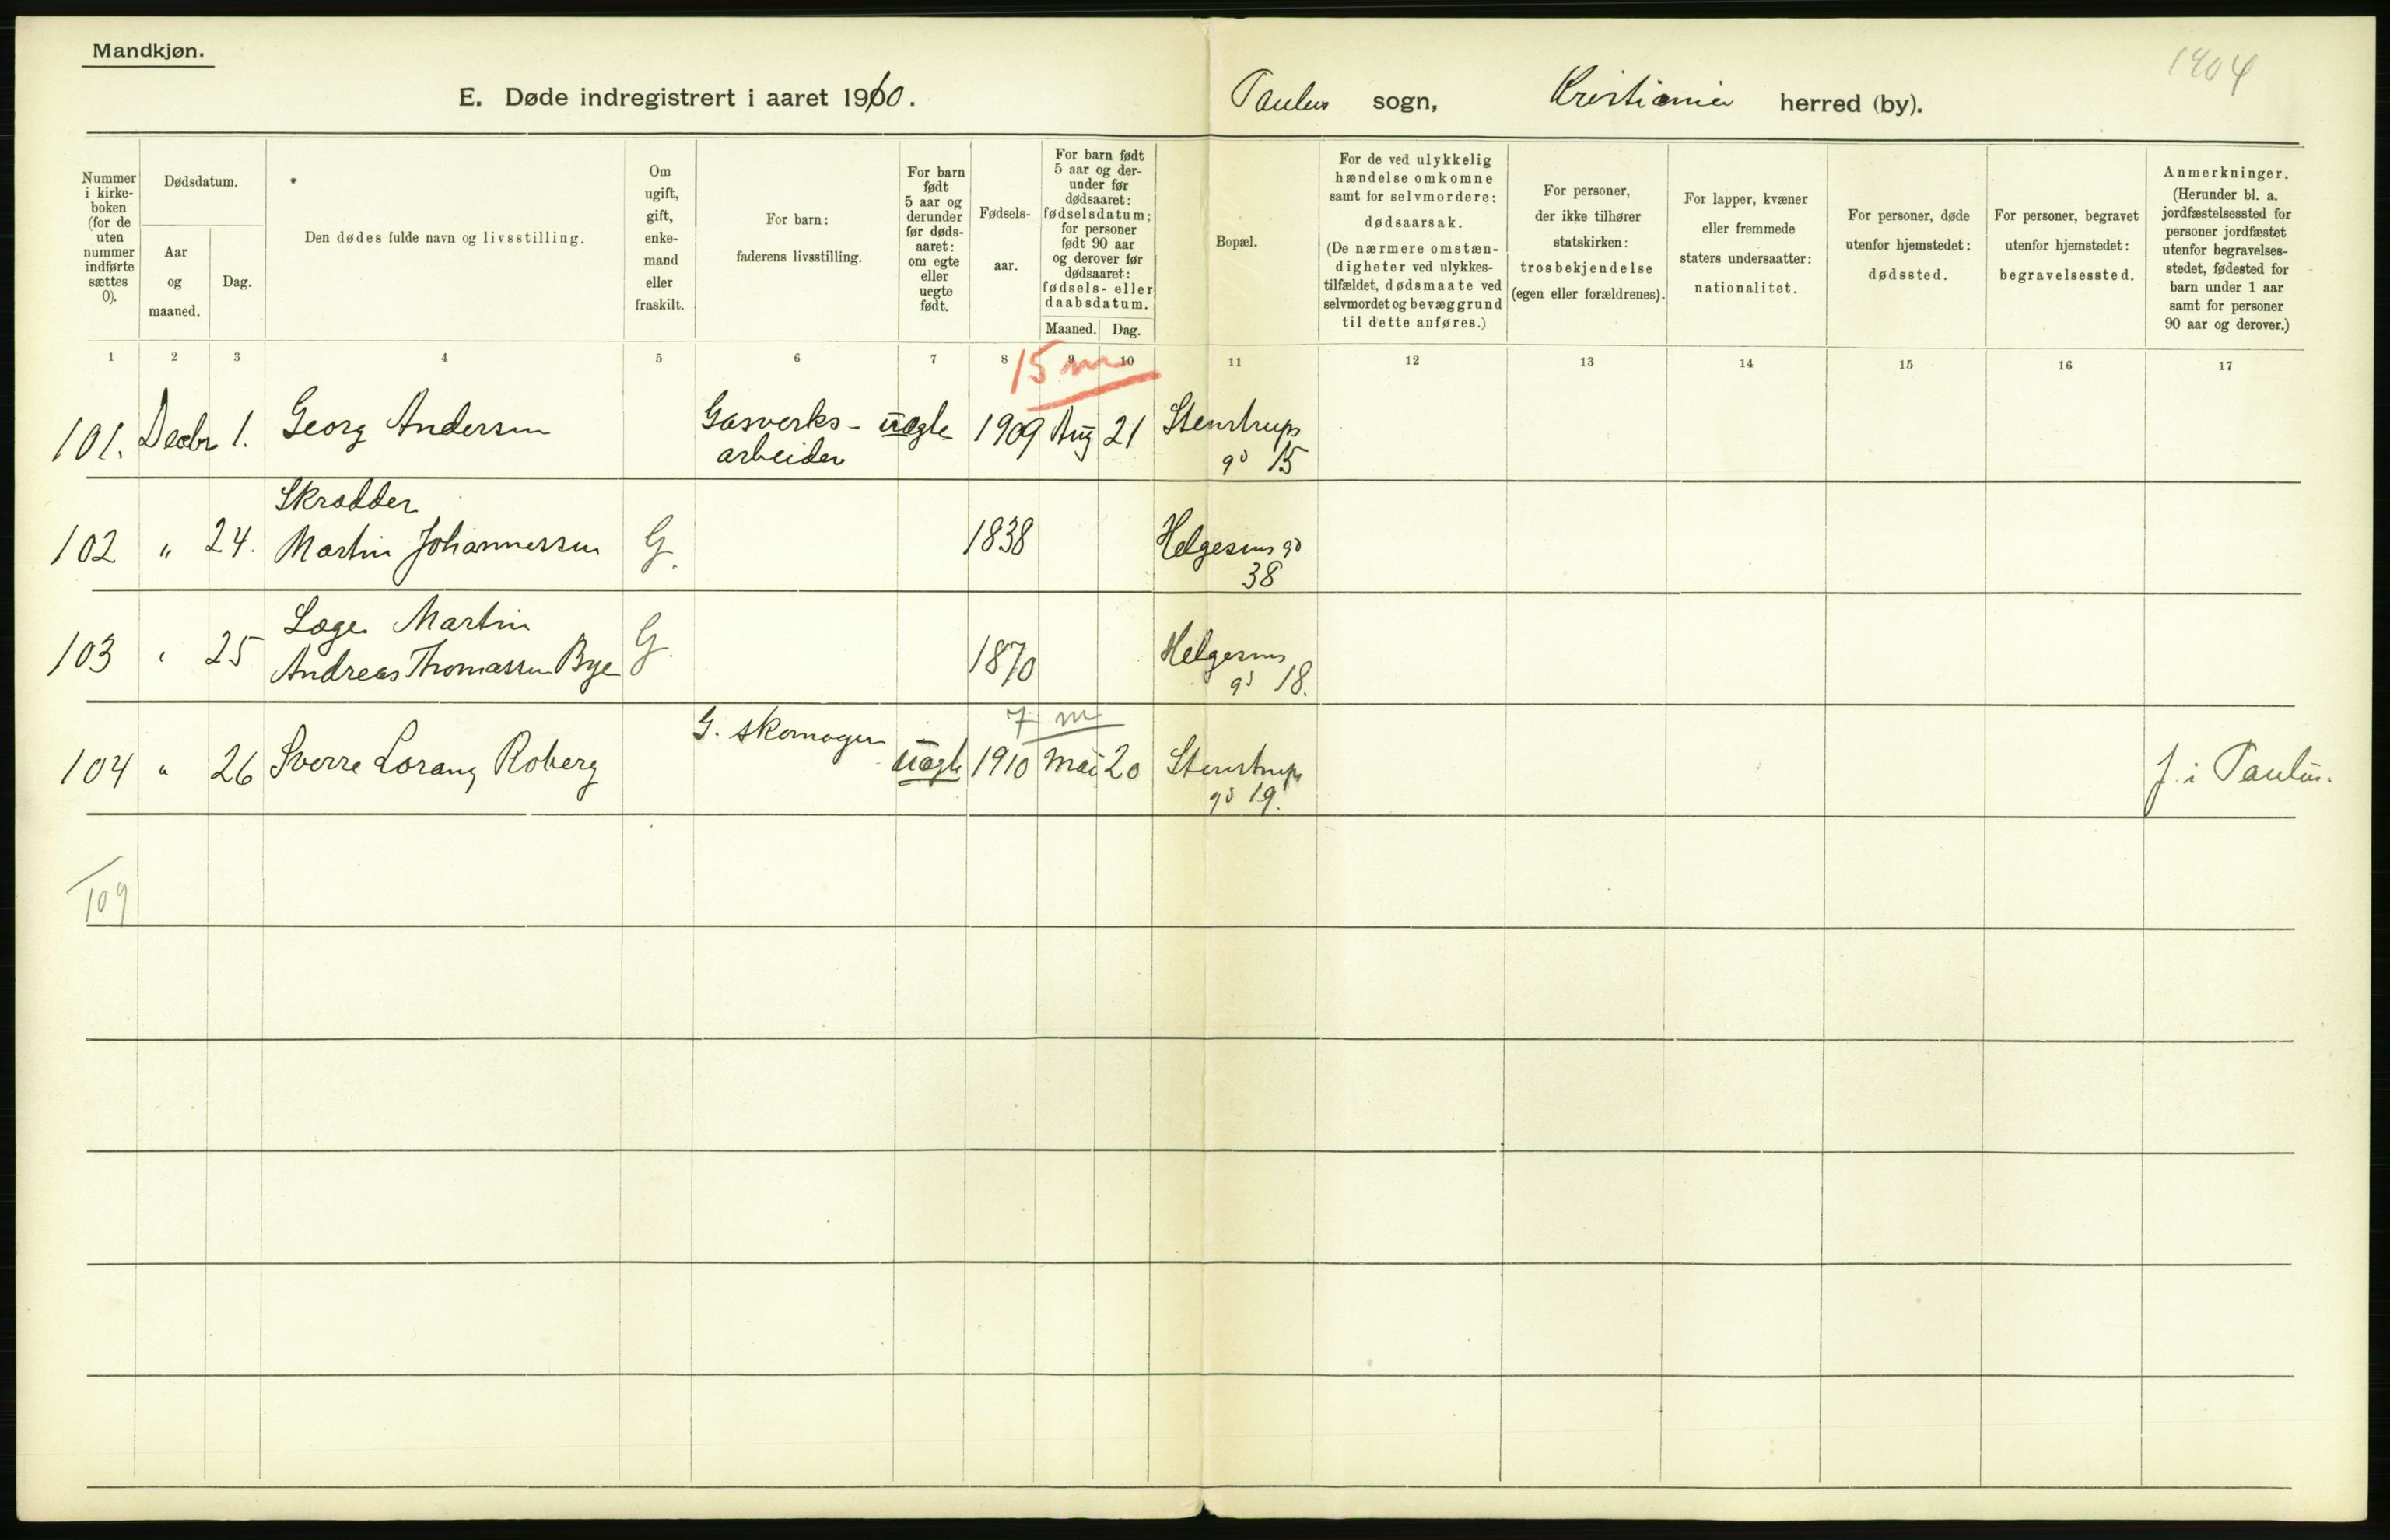 Mandkjøn.
1404
E. Døde indregistrert i aaret 1910.
Paulus sogn, Kristiania herred (by).
Nummer
i kirke-
boken
(for de
uten
nummer
indførte
sættes
0).
Dødsdatum.
Aar
og
maaned.
Dag.
Den dødes fulde navn og livsstilling.
Om
ugift,
gift,
enke-
mand
eller
fraskilt.
For barn:
faderens livsstilling.
For barn
født
5 aar og
derunder
før døds-
aaret:
om egte
eller
uegte
født.
Fødsels-
aar.
For barn født
5 aar og der-
under før
dødsaaret:
fødselsdatum;
for personer
født 90 aar
og derover før
dødsaaret:
fødsels- eller
daabsdatum.
Maaned. Dag.
Bopæl.
For de ved ulykkelig
hændelse omkomne
samt for selvmordere:
dødsaarsak.
(De nærmere omstæn-
digheter ved ulykkes-
tilfældet, dødsmaate ved
selvmordet og bevæggrund
til dette anføres.)
For personer,
der ikke tilhører
statskirken:
trosbekjendelse
(egen eller forældrenes).
For lapper, kvæner
eller fremmede
staters undersaatter:
nationalitet.
For personer, døde
utenfor hjemstedet:
dødssted.
For personer, begravet
utenfor hjemstedet:
begravelsessted.
Anmerkninger.
(Herunder bl. a.
jordfæstelsessted for
personer jordfæstet
utenfor begravelses-
stedet, fødested for
barn under 1 aar
samt for personer
90 aar og derover.)
1 2 3 4 5 6 7 8 9 10 11 12 13 14 15 16 17
15 m
101. Decbr 1. Georg Andersen Gasverks- uægte 1909 Aug 21 Stenstrups
arbeider gd 15
Skrædder
102 " 24. Martin Johannessen G. 1838 Helgesens gd
38
Læge Martin
103 " 25 Andreas Thomassen Bye G. 1870 Helgesens
gd 18.
7 m
G. skomager
104 " 26 Sverre Lorang Roberg uægte 1910 Mai 20 Stenstrups f. i Paulus.
gd 19.
109